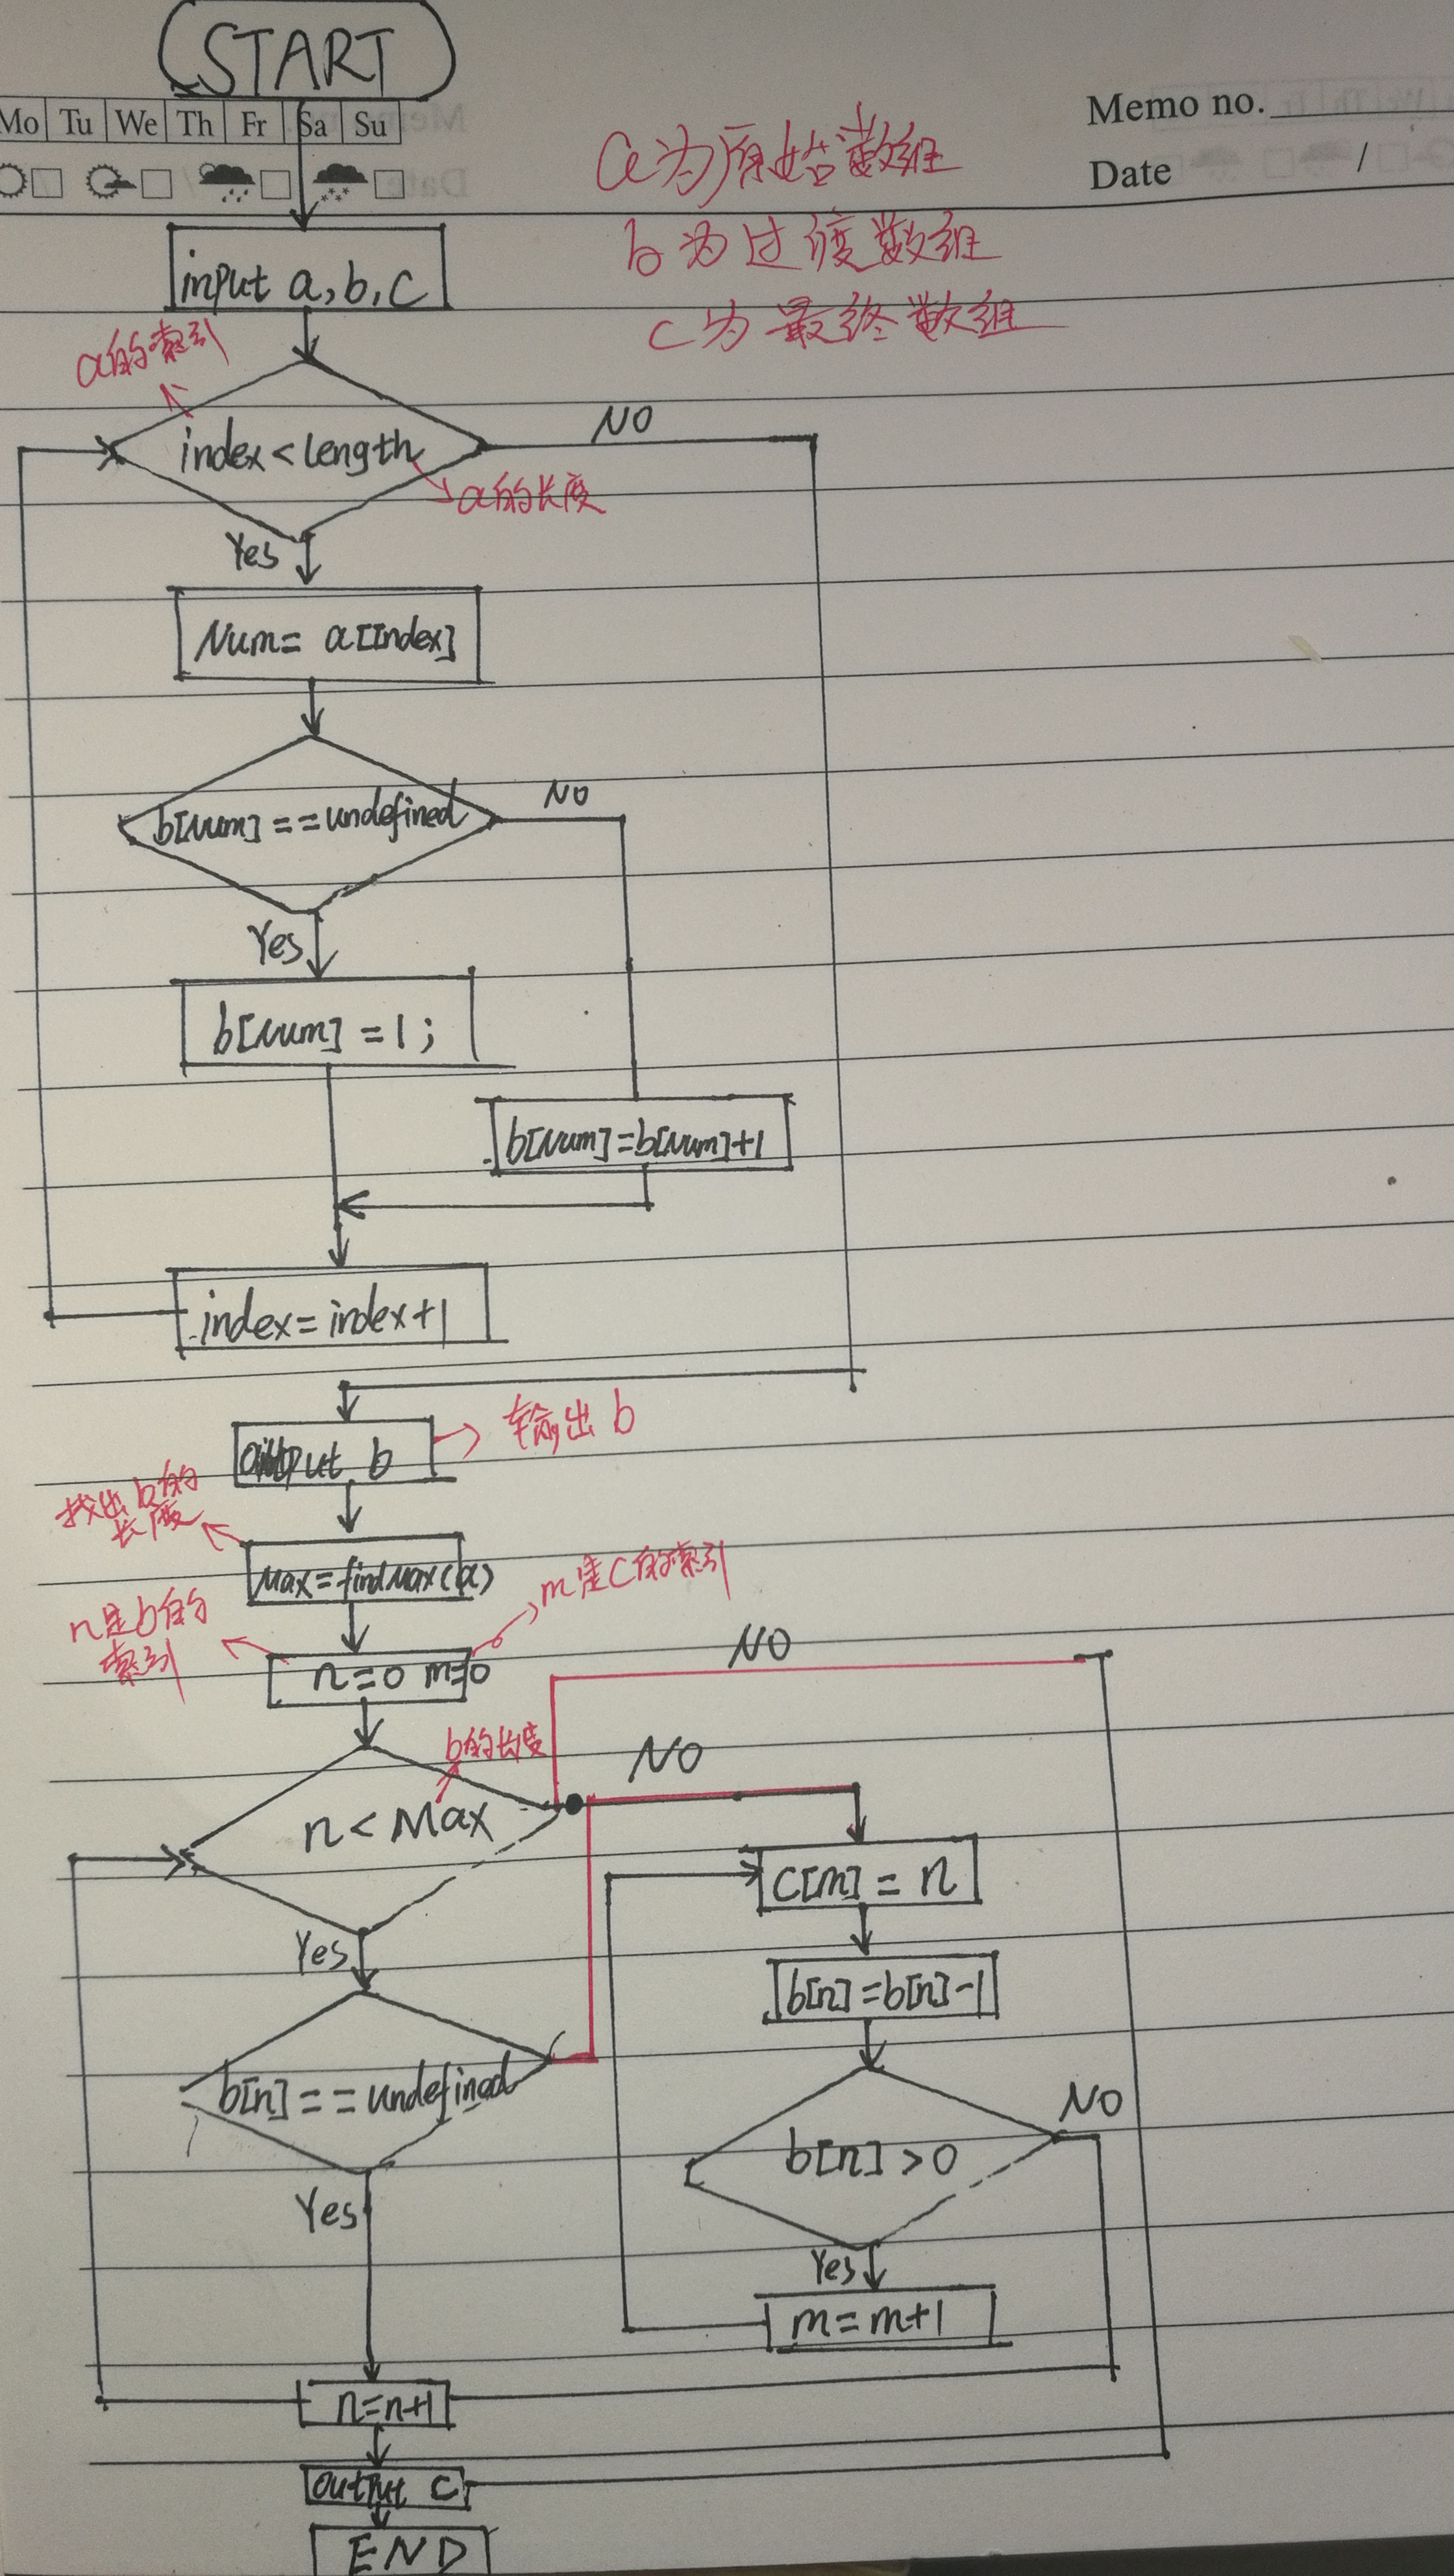 START
Mo Tu We Th Fr Sa Su
Memo no.
Date /
a为原始数组
b为过度数组
c为最终数组
input a,b,c
a的索引
index<length
NO
a的长度
Yes
Num= a[Index]
b[Num]==undefined
NO
Yes
b[Num]=1;
b[Num]=b[Num]+1
index=index+1
output b
输出b
找出b的
长度
Max=findMax(a)
n是b的
索引
m是C的索引
n=0 m=0
NO
b的长度
NO
n<Max
C[m]=n
Yes
b[n]=b[n]-1
b[n]==undefined
NO
b[n]>0
Yes
Yes
m=m+1
n=n+1
output C
END